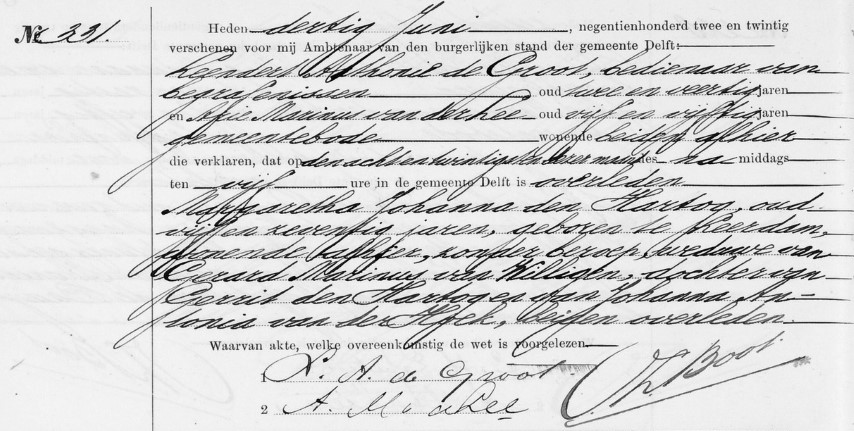 No 331.
Heden dertig Juni, negentienhonderd twee en twintig
verschenen voor mij Ambtenaar van den burgerlijken stand der gemeente Delft:
Leendert Anthonie de Groot, bedienaar van
begrafenissen oud twee en veertig jaren
en Arie Marinus van der Lee oud vijf en vijftig jaren
gemeentebode wonende beiden alhier
die verklaren, dat op den achtentwintigsten dezer maand des na middags
ten vijf ure in de gemeente Delft is overleden
Margaretha Johanna den Hartog, oud
vijf en zeventig jaren, geboren te Leerdam,
wonende alhier, zonder beroep, weduwe van
Gerard Marinus van Killigen, dochter van
Gerrit den Hartog en van Johanna An-
tonia van der Hoek, beiden overleden.
Waarvan akte, welke overeenkomstig de wet is voorgelezen
1 L. A. de Groot.
2 A. M. v d Lee
Boot.